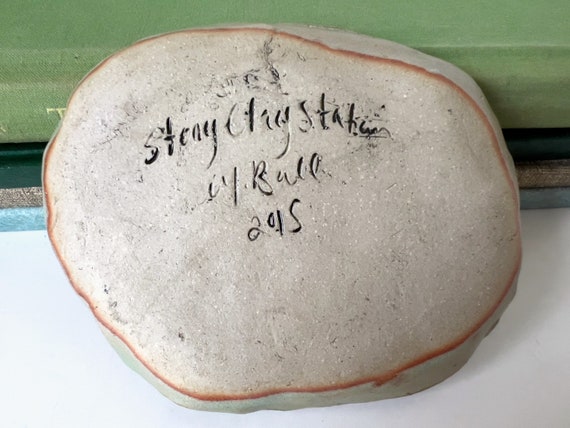 Stony Clay Station
M. Ball
2015